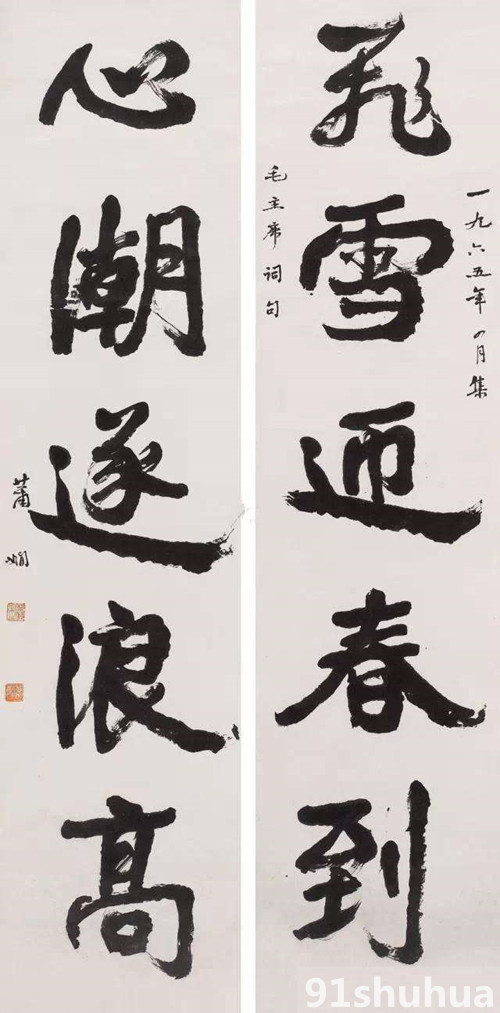 飛雪迎春到
一九六五年四月集
毛主席词句
心潮逐浪高
蕭嫻
91shuhua